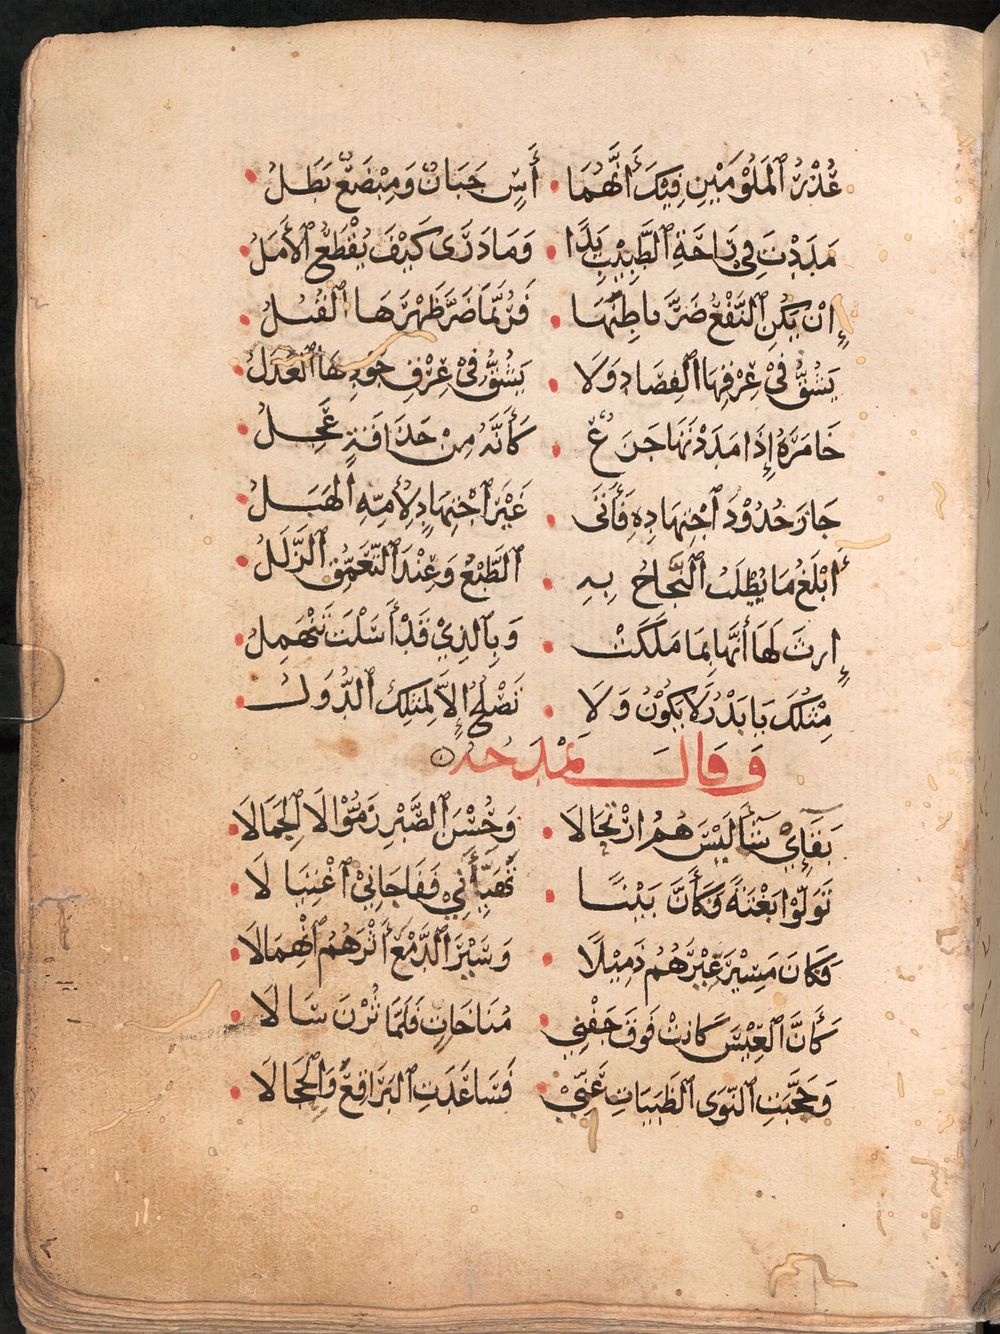 عُذْرُ ٱلْمَلُوْمَيْنِ فِيْكَ أَنَّهُمَا • أَسٍ جَبَانٌ وَمِبْضَعٌ بَطَلُ
مَدَدْتَ فِيْ رَاحَةِ ٱلطَّبِيْبِ يَدًا • وَمَا دَرَى كَيْفَ يُقْطَعُ ٱلْأَمَلُ
إِنْ يَكُنِ ٱلنَّفْعُ ضَرَّ بَاطِنَهَا • فَرُبَّمَا ضَرَّ ظَهْرَهَا ٱلْقُبَلُ
يَشُقُّ فِيْ عِرْقِهَا ٱلْفِصَادُ وَلَا • يَشُقُّ فِيْ عِرْقِ جُوْدِهَا ٱلْعَذَلُ
خَامَرَهُ إِذَا مَدَدْتَهَا جَزَعٌ • كَأَنَّهُ مِنْ حَذَافَةٍ عَجِلُ
جَازَ حُدُوْدَ ٱجْتِهَادِهِ فَأَتَى • غَيْرَ ٱجْتِهَادٍ لِأُمِّهِ ٱلْهَبَلُ
أَبْلَغُ مَا يُطْلَبُ ٱلنَّجَاحُ بِهِ • ٱلطَّبْعُ وَعِنْدَ ٱلتَّعَمُّقِ ٱلزَّلَلُ
إِرْثِ لَهَا أَنَّهَا بِمَا مَلَكَتْ • وَبِٱلَّذِيْ قَدْ أَسَلْتَ تَنْهَمِلُ
مِثْلُكَ يَا بَدْرُ لَا يَكُوْنُ وَلَا • تَصْلُحُ إِلَّا لِمِثْلِكَ ٱلدُّوَلُ
وَقَالَ يَمْدَحُهُ
بَقَائِيْ شَاءَ لَيْسَ هُمُ ارْتِحَالَا • وَحُسْنَ ٱلصَّبْرِ زَمُّوْا لَا ٱلْجِمَالَا
تَوَلَّوْا بَغْتَةً فَكَأَنَّ بَيْنًا • تَهَيَّبَنِيْ فَفَاجَانِيْ ٱغْتِيَالَا
فَكَانَ مَسِيْرَ عِيْرِهُمُ ذَمِيْلًا • وَسَيْرَ ٱلدَّمْعِ أَثْرَهُمُ ٱنْهِمَالَا
كَأَنَّ ٱلْعِيْسَ كَانَتْ فَوْقَ جَفْنِي • مُنَاخَاتٍ فَلَمَّا ثُرْنَ سَالَا
وَحَجَّبَتِ ٱلنَّوَى ٱلظَّبَيَاتِ عَنِّيْ • فَسَاعَدَتِ ٱلْبَرَاقِعَ وَٱلْحِجَالَا